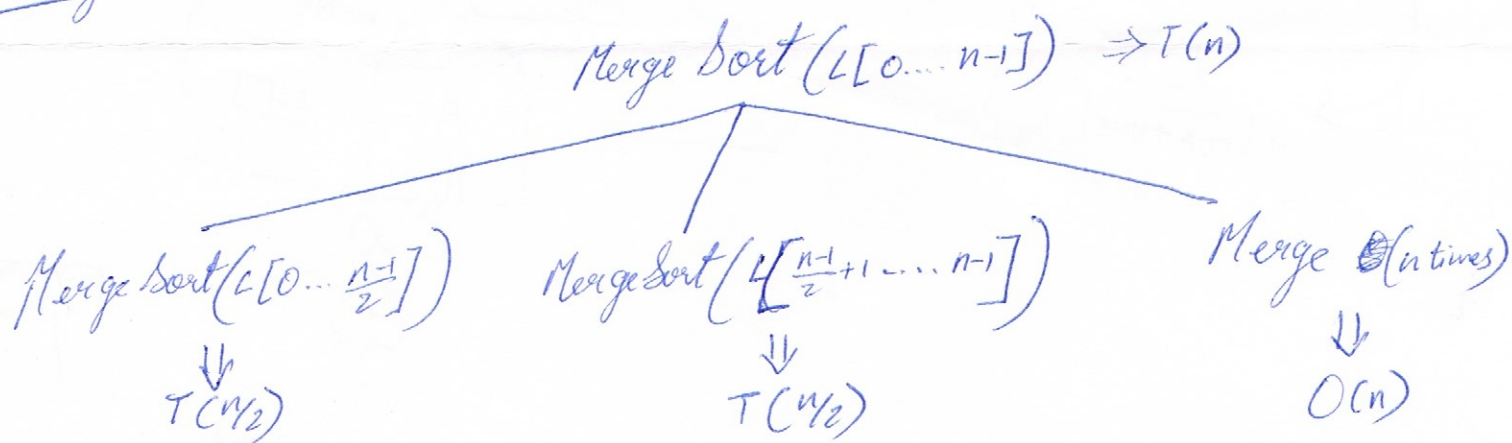 Merge Sort (L[0.... n-1]) ⇒ T(n)
Merge Sort (L[0... \frac{n-1}{2}]) MergeSort (L[\frac{n-1}{2}+1 ..... n-1]) Merge (n times)
⇓ ⇓ ⇓
T(n/2) T(n/2) O(n)